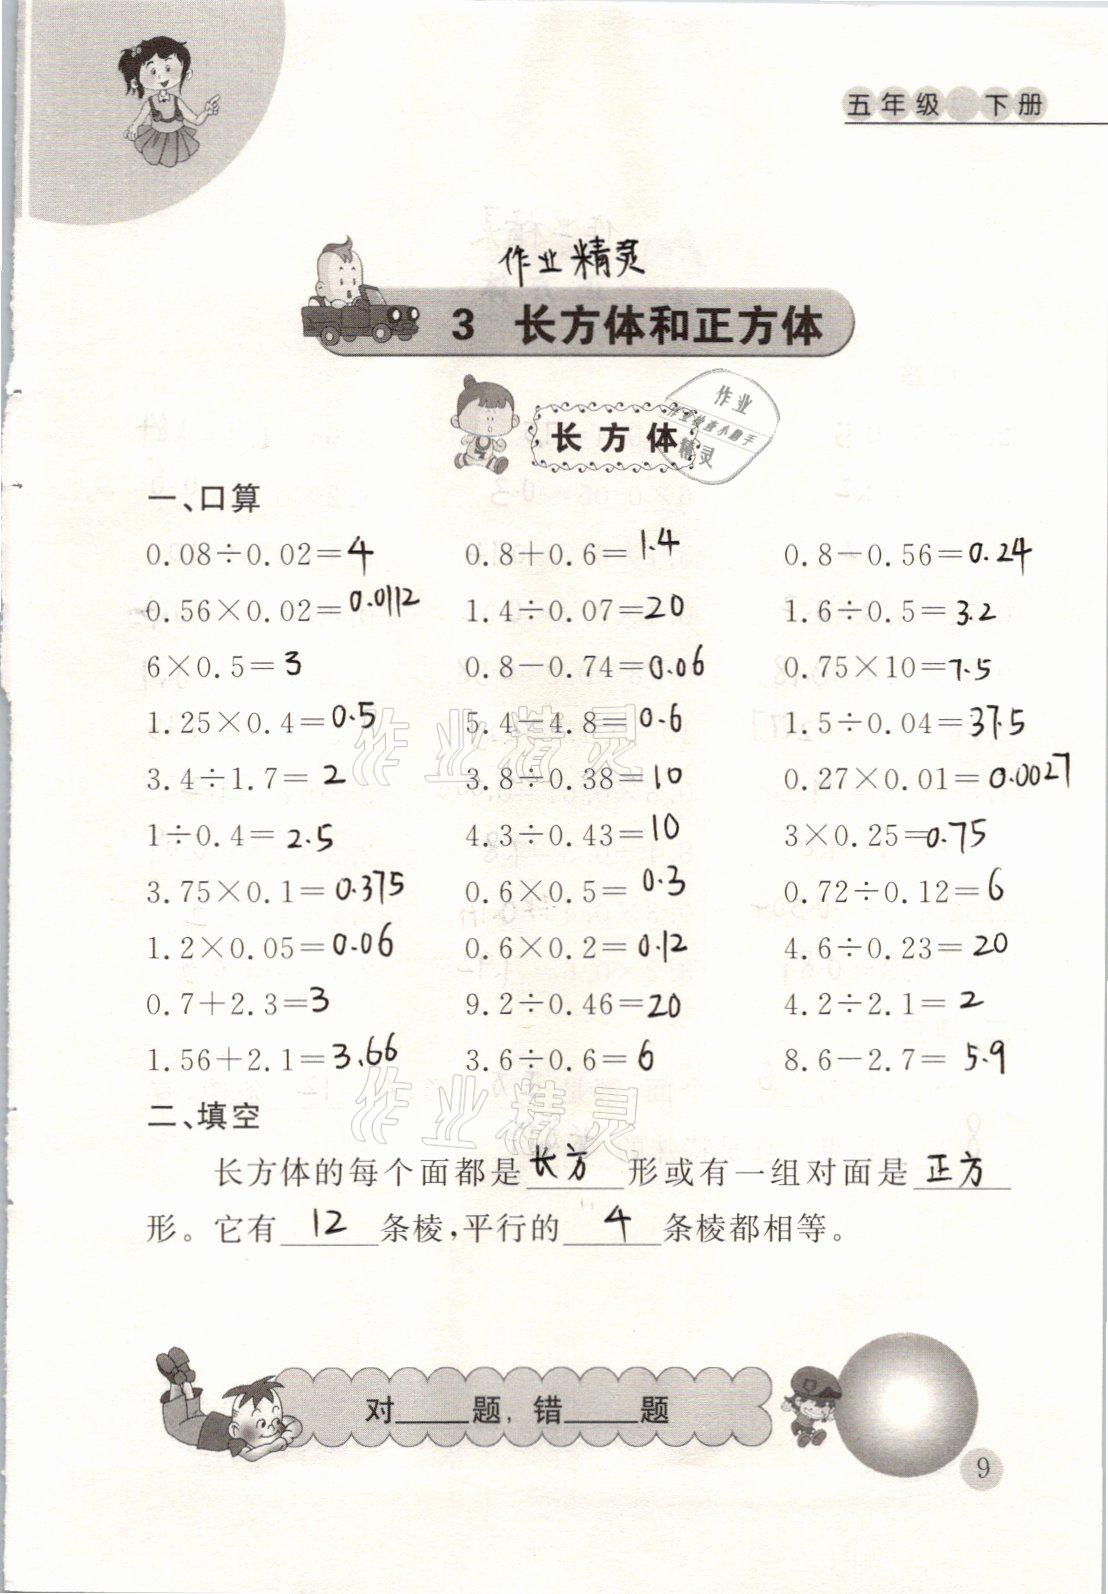 五年级 下册
作业精灵
3 长方体和正方体
作业
作业检查小助手
精灵
长方体
一、口算
0.08÷0.02=4 0.8+0.6=1.4 0.8-0.56=0.24
0.56×0.02=0.0112 1.4÷0.07=20 1.6÷0.5=3.2
6×0.5=3 0.8-0.74=0.06 0.75×10=7.5
1.25×0.4=0.5 5.4-4.8=0.6 1.5÷0.04=37.5
作业精灵
3.4÷1.7=2 3.8÷0.38=10 0.27×0.01=0.0027
1÷0.4=2.5 4.3÷0.43=10 3×0.25=0.75
3.75×0.1=0.375 0.6×0.5=0.3 0.72÷0.12=6
1.2×0.05=0.06 0.6×0.2=0.12 4.6÷0.23=20
0.7+2.3=3 9.2÷0.46=20 4.2÷2.1=2
1.56+2.1=3.66 3.6÷0.6=6 8.6-2.7=5.9
作业精灵
二、填空
长方体的每个面都是长方形或有一组对面是正方
形。它有12条棱,平行的4条棱都相等。
对____题,错____题
9